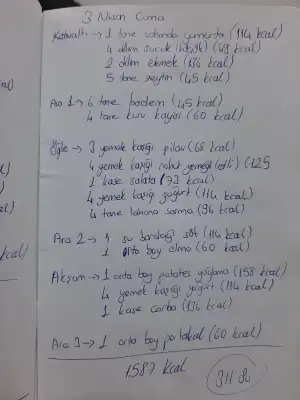 3 Nisan Cuma
Kahvaltı → 1 tane rafadan yumurta (114 kcal)
4 dilim sucuk (küçük) (69 kcal)
2 dilim ekmek (136 kcal)
5 tane zeytin (45 kcal)
Ara 1 → 6 tane badem (45 kcal)
4 tane kuru kayısı (60 kcal)
Öğle → 3 yemek kaşığı pilav (68 kcal)
4 yemek kaşığı nohut yemeği (etli) (125
1 kase salata (73 kcal)
4 yemek kaşığı yoğurt (114 kcal)
4 tane lahana sarma (96 kcal)
Ara 2 → 1 su bardağı süt (114 kcal)
1 orta boy elma (60 kcal)
Akşam → 1 orta boy patates haşlama (158 kcal)
4 yemek kaşığı yoğurt (114 kcal)
1 kase çorba (136 kcal)
Ara 3 → 1 orta boy portakal (60 kcal)
1587 kcal